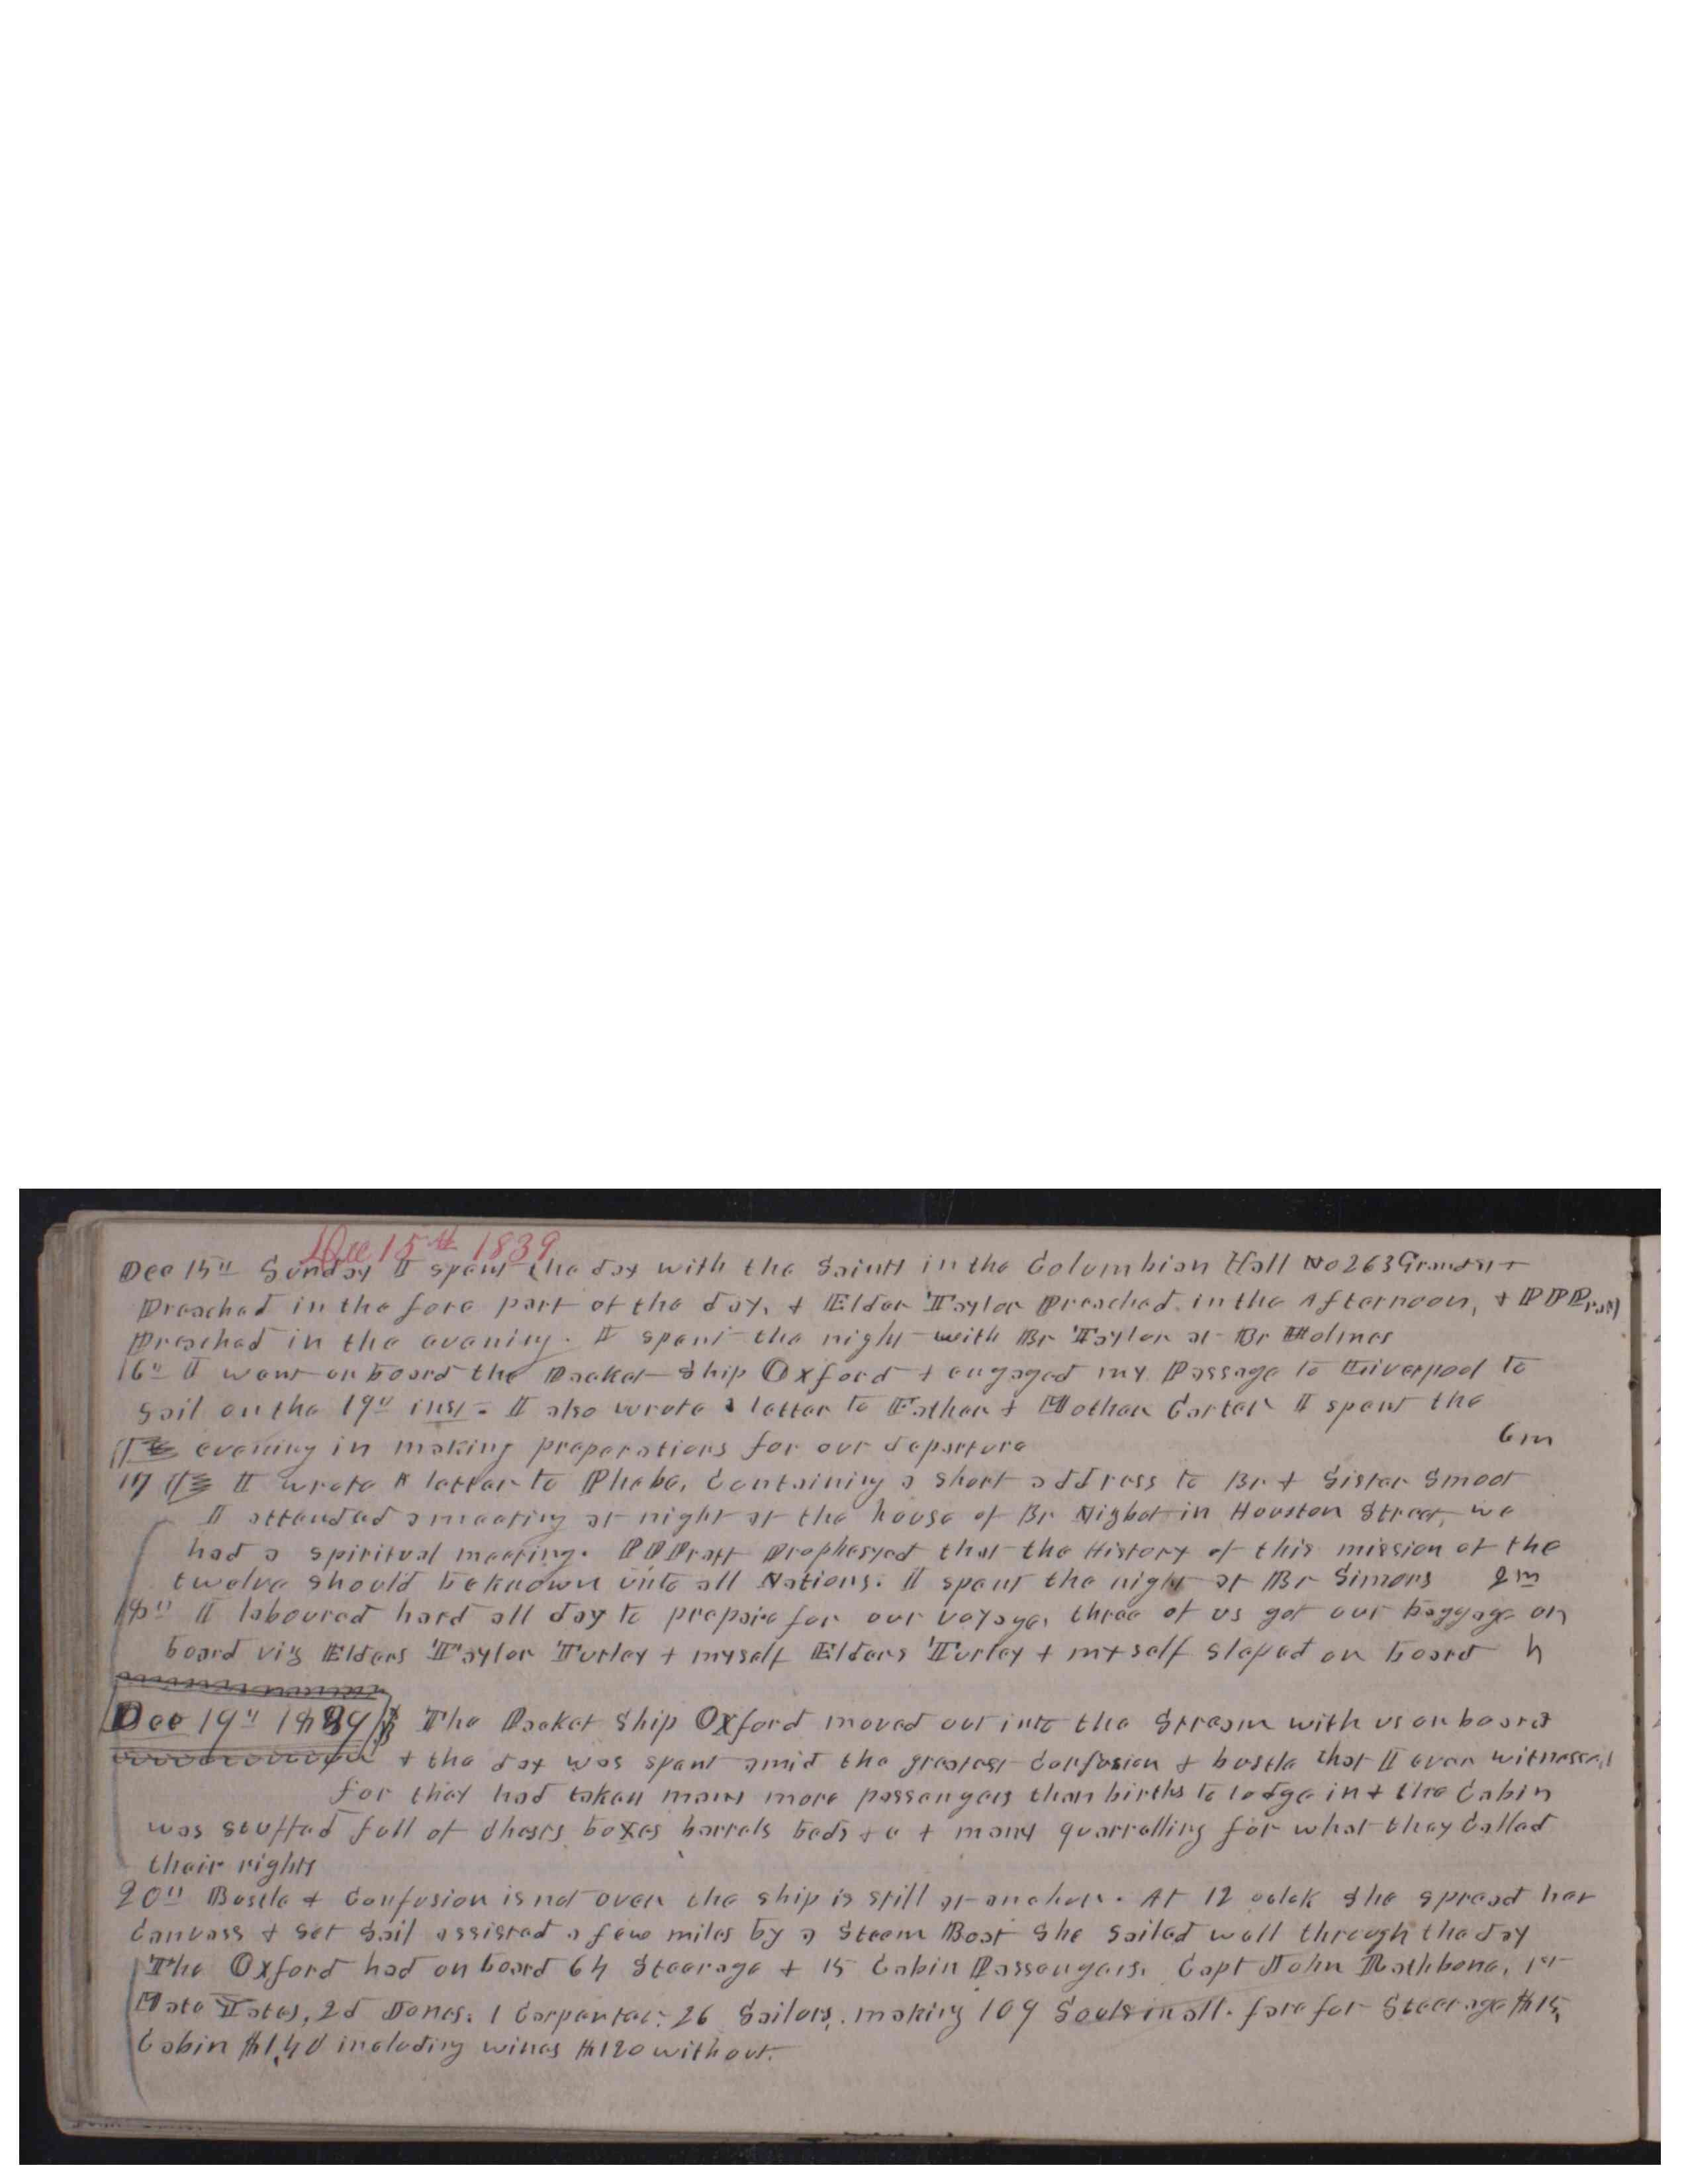 Dec 15th 1839
Dec 15th Sunday I spent the day with the Saints in the Columbian Hall No 263 Grand st I
Preached in the fore part of the day, & Elder Taylor Preached in the Afternoon, & P P Pratt
Preached in the evening. I spent the night with Br Taylor at Br Holmes
16th I went on board the Packet Ship Oxford & engaged my Passage to Liverpool to
sail on the 19th inst. I also wrote a letter to Father & Mother Carter I spent the
evening in making preparations for our departure 6 m
17 I wrote A letter to Phebe, Containing a short address to Br & Sister Smoot
I attended a meeting at night at the house of Br in Houston Street, we
had a spiritual meeting. P P Pratt Prophesyed that the History of this mission of the
twelve should be known unto all Nations. I spent the night at Br Simons 2 m
18th I laboured hard all day to prepare for our voyage, three of us got our baggage on
board viz Elders Taylor Turley & myself Elders Turley & myself sleped on board
Dec 19th 1839 The Packet Ship Oxford moved out into the Stream with us on board
& the day was spent amid the greatest Confusion & bustle that I ever witnessed
for they had taken many more passengers than births to lodge in & the Cabin
was stuffed full of Chests boxes barrels beds &c & many quarrelling for what they Called
their rights
20th Bustle & Confusion is not over the ship is still at anchor. At 12 oclok She spread her
Canvass & Set Sail assisted a few miles by a Steem Boat She Sailed well through the day
The Oxford had on board 64 Steerage & 15 Cabin Passengers. Capt John Rathbone, 1st
Mate Yates, 2d Jones. 1 Carpenter. 26 Sailors, making 109 Souls in all. fare for Steerage $15,
Cabin $1,40 including wines $120 without.